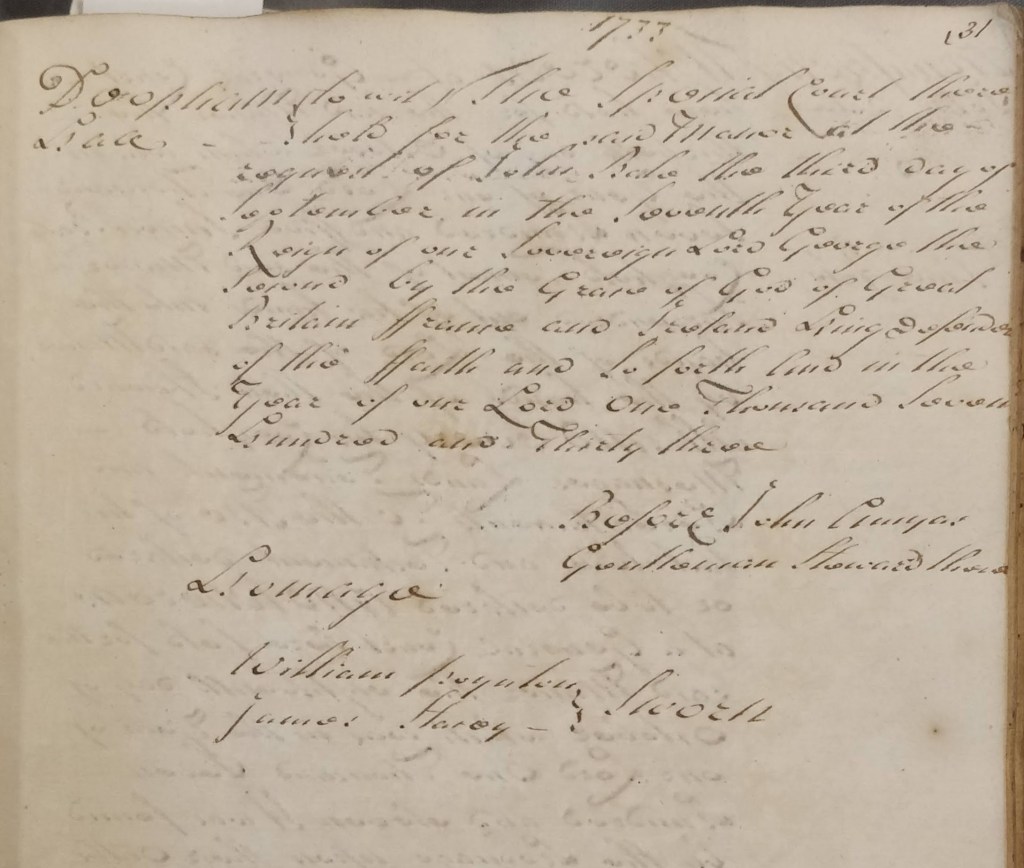 1733
31
Doopham (to wit) The Special Court there
Hall - - held for the said Manor at the
request of John Bale the third day of
September in the Seventh Year of the
Reign of our Sovereign Lord George the
Second by the Grace of God of Great
Britain ffrance and Ireland King Defender
of the ffaith and So forth And in the
Year of our Lord One Thousand Seven
Hundred and Thirty three
Before John
Gentleman Steward there
Homage
William Poynton
James Sworn